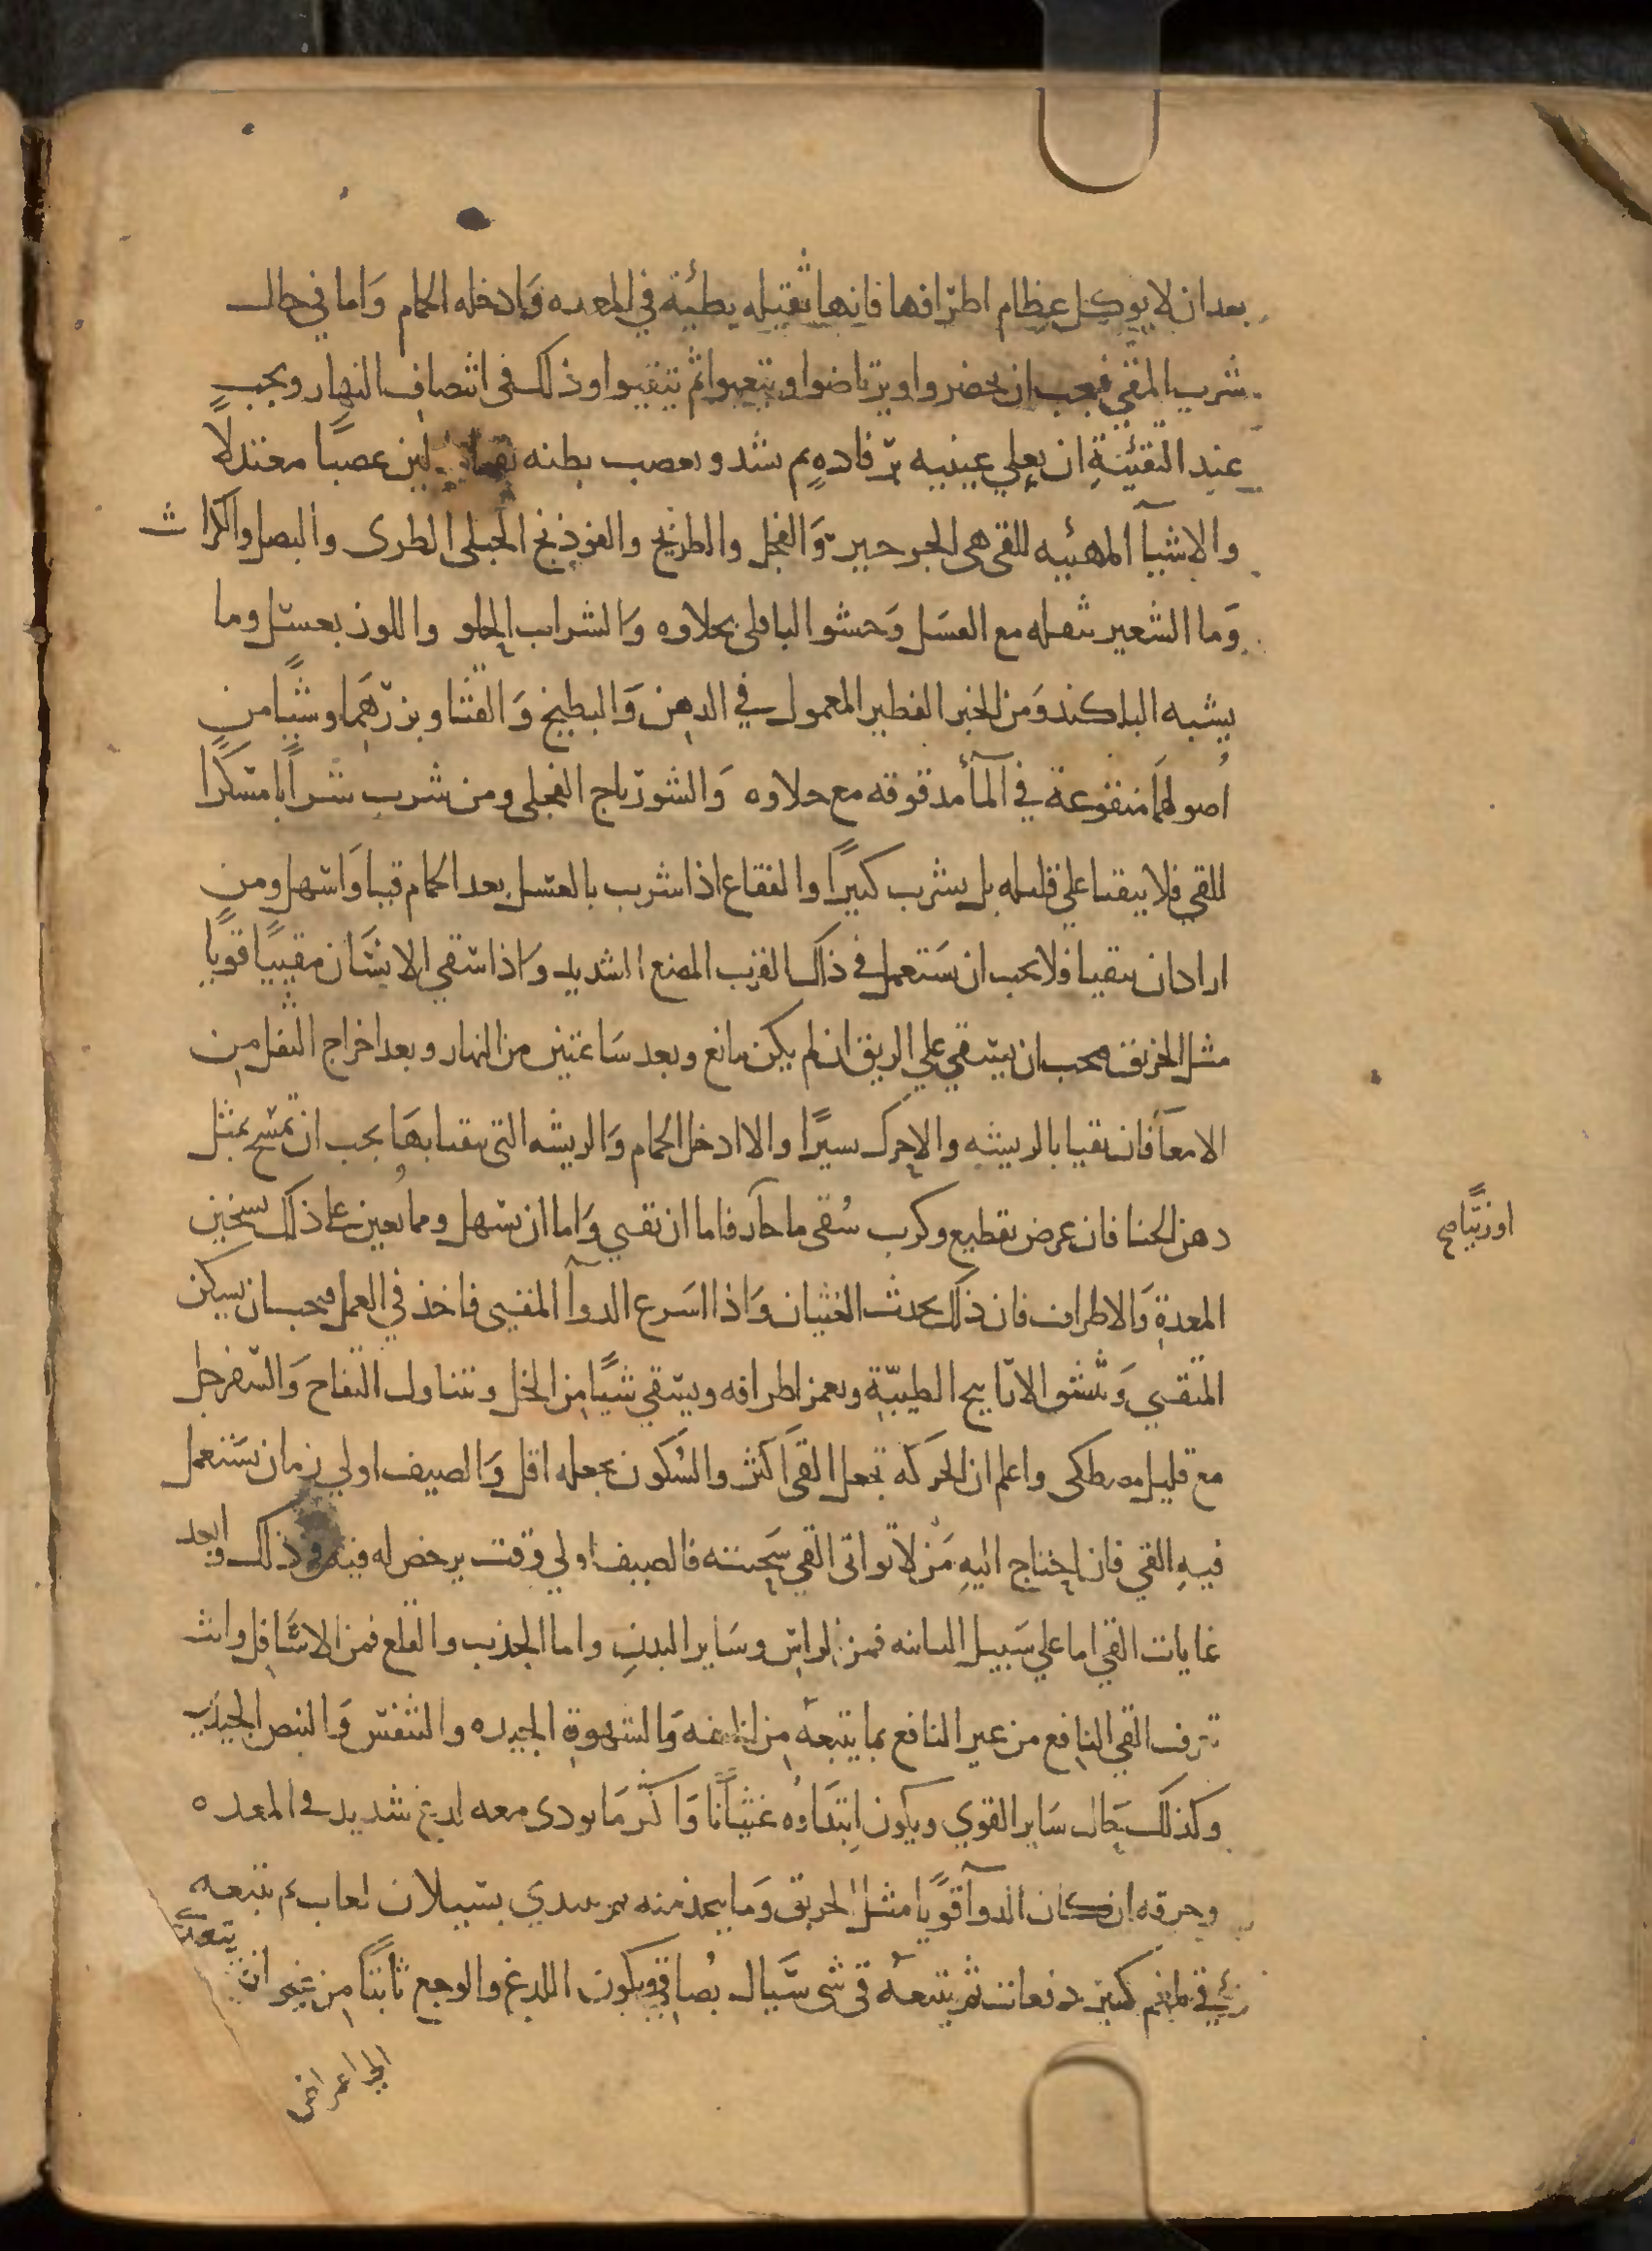 بعد ان لا يوكل عظام اطرافها فانها ثقيله بطيئة في المعده وادخله الحمام واما في حال
شرب المقي فيجب ان يحضروا ويرتاضوا ويتعبوا ثم يتقيوا وذلك في انتصاف النهار ويجب
عند التقئية ان يعلي عينيه برفاده ثم تشد ويعصب بطنه لين عصبا معتدلا
والاشيآ المهئيه للقي هي الجرجير والفجل والطريخ والفوذنج الجبلي الطرى والبصل والكراث
وما الشعير بثفله مع العسل وحشو الباقلى بحلاوه والشراب الحلو واللوز بعسل وما
يشبه البلاكند ومن الخبز الفطير المعمول في الدهن والبطيخ والقثا وبزرهما وشيا من
اصولهما منقوعة في المآ مدقوقه مع حلاوه والشورباج الفجلي ومن شرب شرابا مسكرا
للقي فلا يتقيا على قليله بل يشرب كثيرا والفقاع اذا شرب بالعسل بعد الحمام قيا واسهل ومن
اراد ان يتقيا فلا يجب ان يستعمل في ذلك القرب المضغ الشديد واذا سقي الانسان مقييا قويا
مثل الخربق فيجب ان يسقي علي الريق ان لم يكن مانع وبعد ساعتين من النهار وبعد اخراج الثفل من
الامعآ فان تقيا بالريشه والا حرك يسيرا والا ادخل الحمام والريشه التي يتقيا بها يجب ان تمسح بمثل
دهن الحنا فان عرض تقطيع وكرب سقي ما حار فاما ان تقيى واما ان تسهل ومما يعين على ذلك تسخين
المعدة والاطراف فان ذلك يحدث الغثيان واذا اسرع الدوآ المقيى فاخذ في العمل فيجب ان يسكن
المتقيى وينشق الاراييح الطيبة ويغمز اطرافه ويسقي شيا من الخل ويتناول التفاح والسفرجل
مع قليل مصطكى واعلم ان الحركه تجعل القى اكثر والسكون يجعله اقل والصيف اولي زمان يستعمل
فيه القي فان احتاج اليه من لا تواتي القي سحنته فالصيف اولي وقت يرخص له فيه في ذلك وابعد
غايات القي اما علي سبيل التنقيه فمن الراس وساير البدن واما الجذب والقلع فمن الاسافل وانت
تعرف القي النافع من غير النافع بما يتبعه من الخفه والشهوة الجيده والتنفس والنبض الجيدين
وكذلك حال ساير القوي ويكون ابتداوه غثيانا واكثر ما يودى معه لدغ شديد في المعده
وحرقه ان كان الدوآ قويا مثل الخربق وما يتخذ منه ثم يبتدي بسيلان لعاب ثم يتبعه
قي بلغم كثير دفعات ثم يتبعه قي شي سيال بصاقي ويكون اللدغ والوجع ثابتا من غير ان يتعدى
الى اعراض
او زنباح